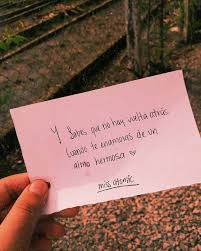 Y, Sabes que no hay vuelta atrás
cuando te enamoras de un
alma hermosa
miss atomic